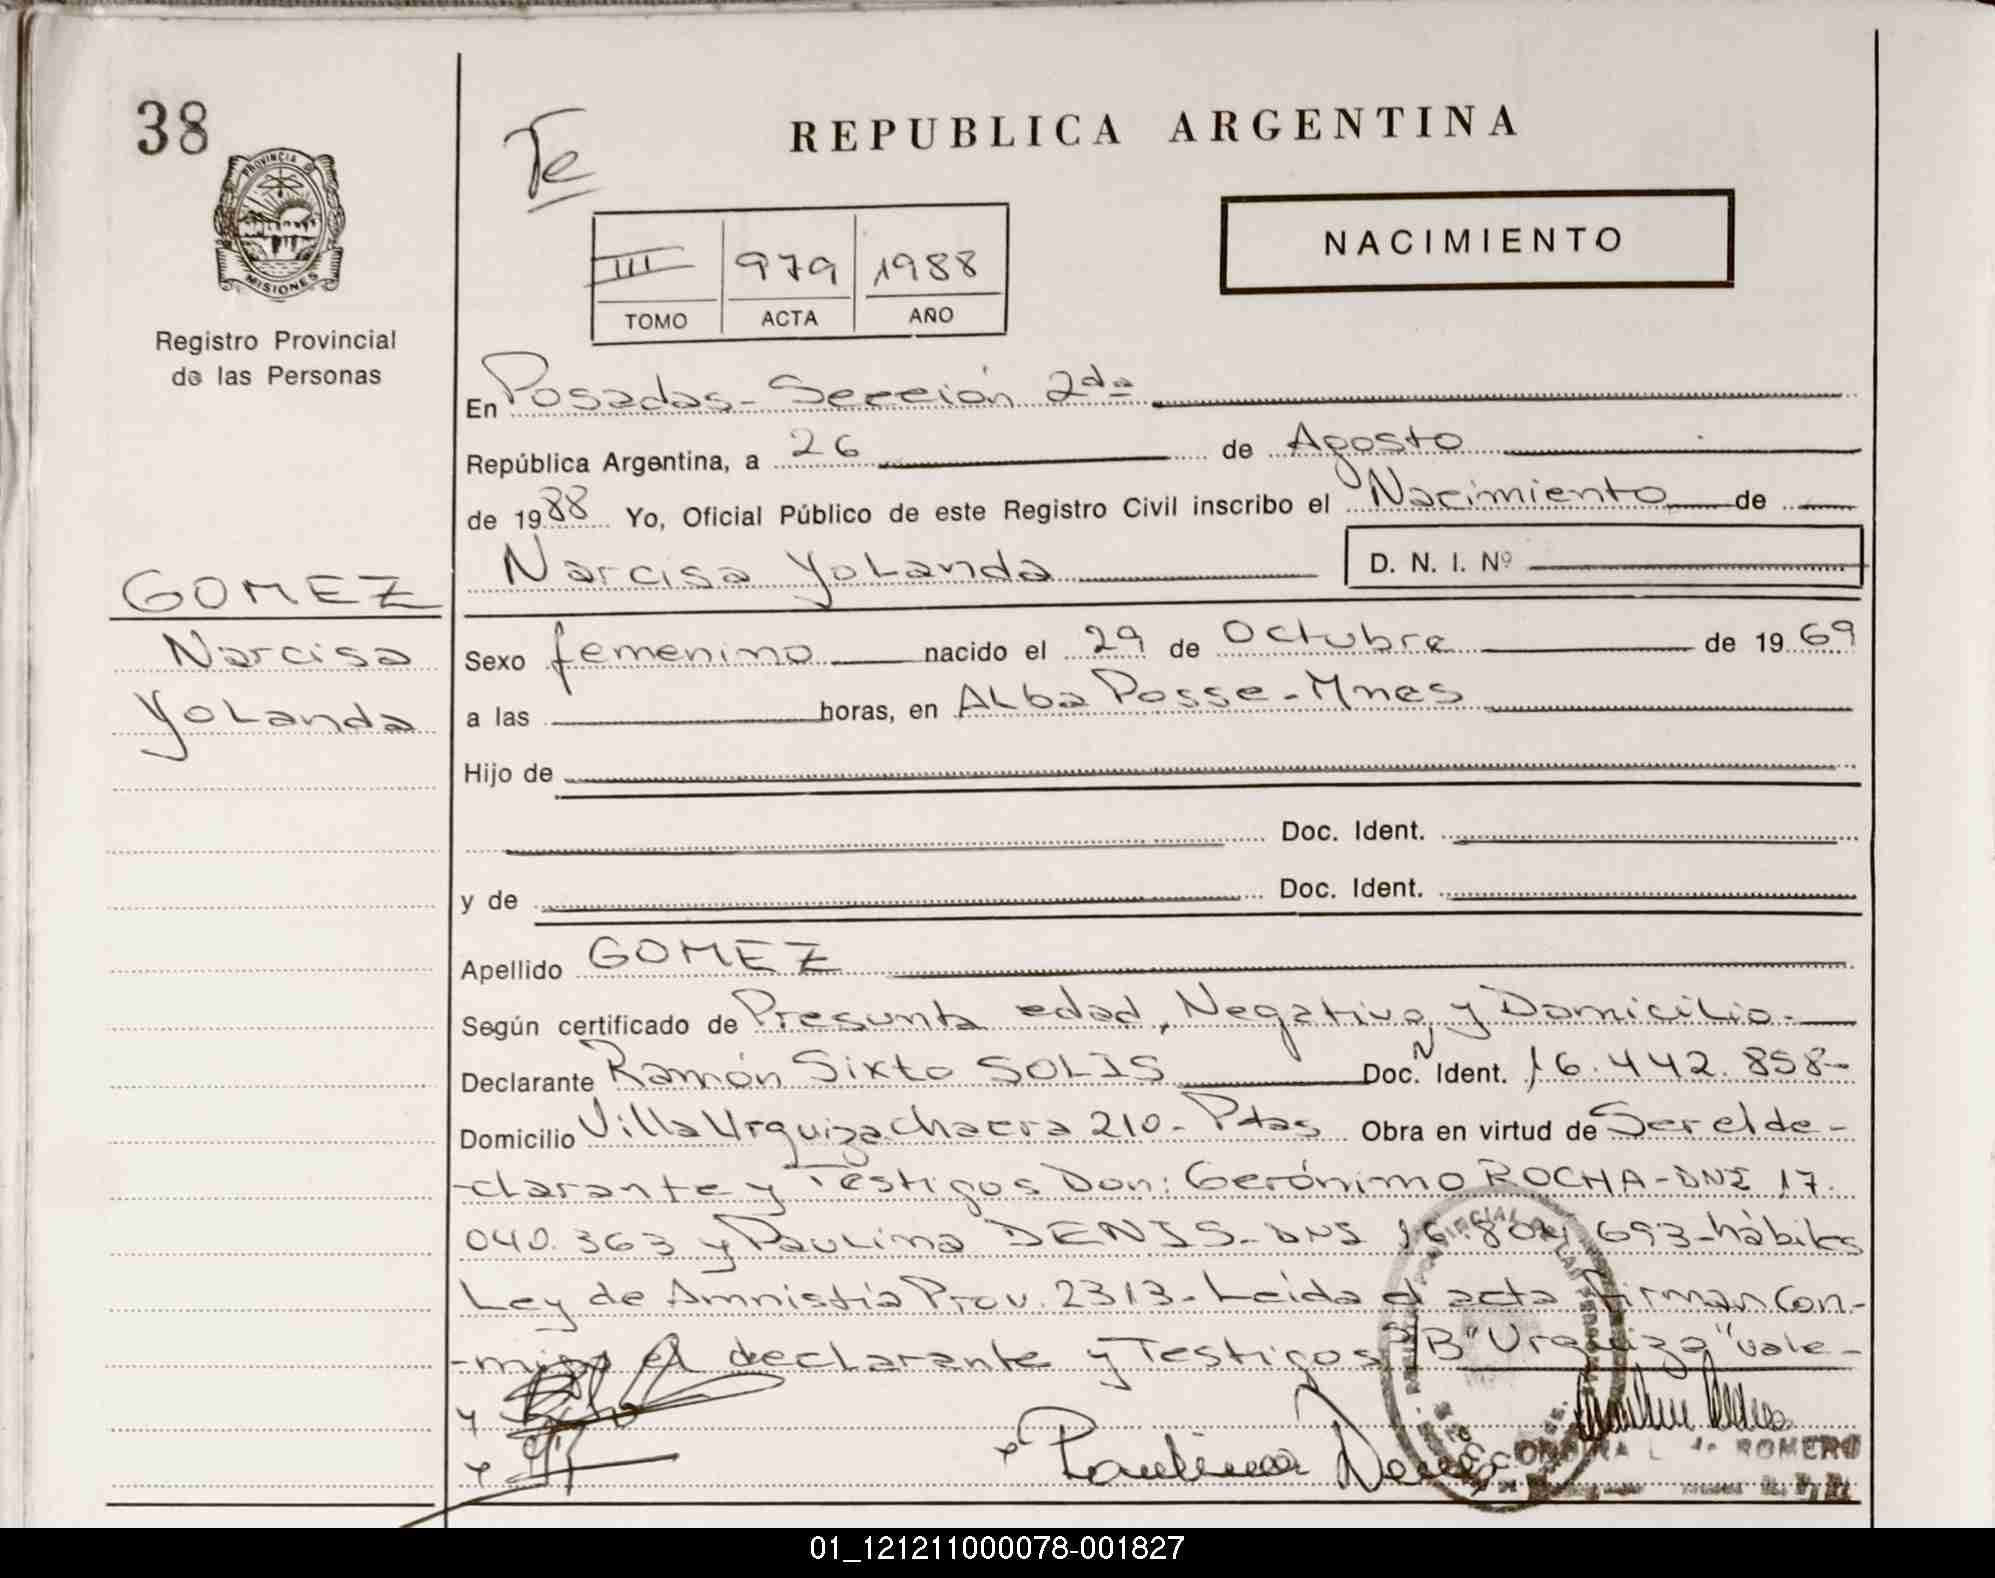 38
PROVINCIA DE
MISIONES
Registro Provincial
de las Personas
GOMEZ
Narcisa
Yolanda
Te
REPUBLICA ARGENTINA
NACIMIENTO
III 979 1988
TOMO ACTA AÑO
En Posadas - Sección 2da
República Argentina, a 26 de Agosto
de 1988 Yo, Oficial Público de este Registro Civil inscribo el Nacimiento de
Narcisa Yolanda D. N. I. Nº
Sexo femenino nacido el 29 de Octubre de 1969
a las horas, en Alba Posse - Mnes
Hijo de
Doc. Ident.
y de Doc. Ident.
Apellido GOMEZ
Según certificado de Presunta edad, Negativo y Domicilio.-
Declarante Ramón Sixto SOLIS Doc. N Ident. 16.442.858-
Domicilio Villa Urquiza chacra 210 - Pdas Obra en virtud de Ser el de-
-clarante y Testigos Don: Gerónimo ROCHA - DNI 17.
040.363 y Paulina DENIS - DNI 16.804.693 - hábiles
Ley de Amnistía Prov. 2313 - Leída el acta Firman con-
-migo el declarante y Testigos S/B "Urquiza" vale -
Paulina Denis
ROMERO
01_121211000078-001827